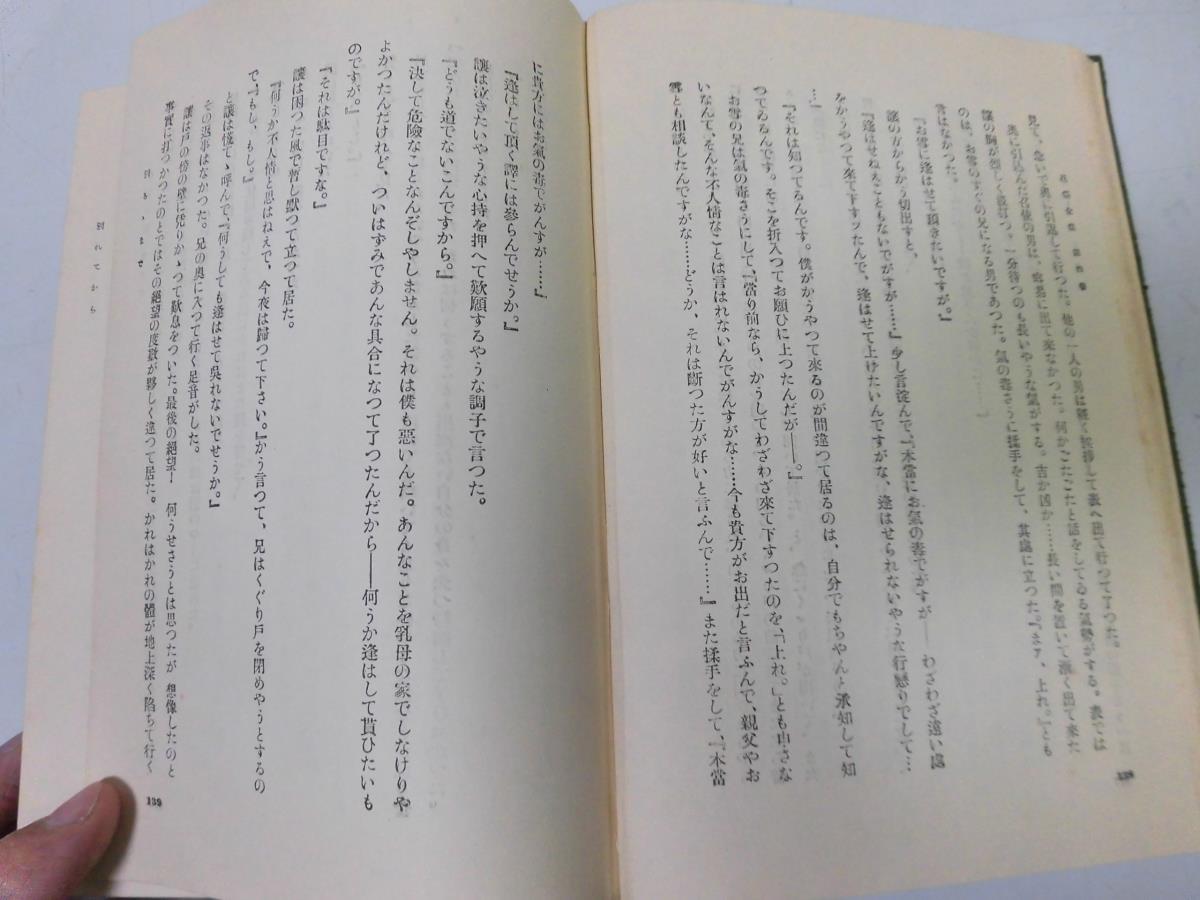 見て、急いで奥に引返して行つた。他の一人の男は軽く挨拶して表へ出て行つて了つた。
奥に引込んだ名使の男は、容易に出て來なかつた。何かこたこたと話をしてゐる氣勢がする。表では
譲の胸が烈しく波打つ。一分待つのも長いやうな氣がする。吉か凶か……長い間を置いて漸く出て來た
のは、お雪のすぐの兄になる男であつた。氣の毒さうに揉手をして、其處に立つた。『まア、上れ。』とも
言はなかつた。
『お雪に逢はせて頂きたいですが。』
譲の方からかう切出すと、
『逢はせねえこともないでがすが……』少し言淀んで、『本當にお氣の毒でがすが――わざわざ遠い處
をかうやつて來て下すツたんで、逢はせて上げたいんですがな、逢はせられないやうな行懸りでして…
…』
『それは知つてるんです。僕がかうやつて來るのが間違つて居るのは、自分でもちやんと承知して知
つてゐるんです。そこを折入つてお願ひに上つたんだが――。』
お雪の兄は氣の毒さうにして、『當り前なら、かうしてわざわざ來て下すつたのを、「上れ。」とも申さな
いなんて、そんな不人情なことは言はれないんでがんすがな……今も貴方がお出だと言ふんで、親父やお
雪とも相談したんですがな……どうか、それは斷つた方が好いと言ふんで……』また揉手をして、『本當
138
に貴方にはお氣の毒でがんすが……』
『逢はして頂く譯には參らんでせうか。』
譲は泣きたいやうな心持を押へて歎願するやうな調子で言つた。
『どうも道でないこんですから。』
『決して危險なことなんぞしやしません。それは僕も惡いんだ。あんなことを乳母の家でしなけりや
よかつたんだけれど、ついはずみであんな具合になつて了つたんだから――何うか逢はして貰ひたいも
のですが。』
『それは駄目ですな。』
譲は困つた風で暫し默つて立つて居た。
『何うか不人情と思はねえで、今夜は歸つて下さい。』かう言つて、兄はくぐり戸を閉めやうとするの
で、『もし、もし。』
と譲は慌てゝ呼んで、『何うしても逢はせて呉れないでせうか。』
その返事はなかつた。兄の奥に入つて行く足音がした。
譲は戸の傍の壁に凭りかゝつて歎息をついた。最後の絶望！　何うせさうとは思つたが 想像したのと
事實に打つかつたのとではその絶望の度數が夥しく違つて居た。かれはかれの體が地上深く陷ちて行く
別れてから
139